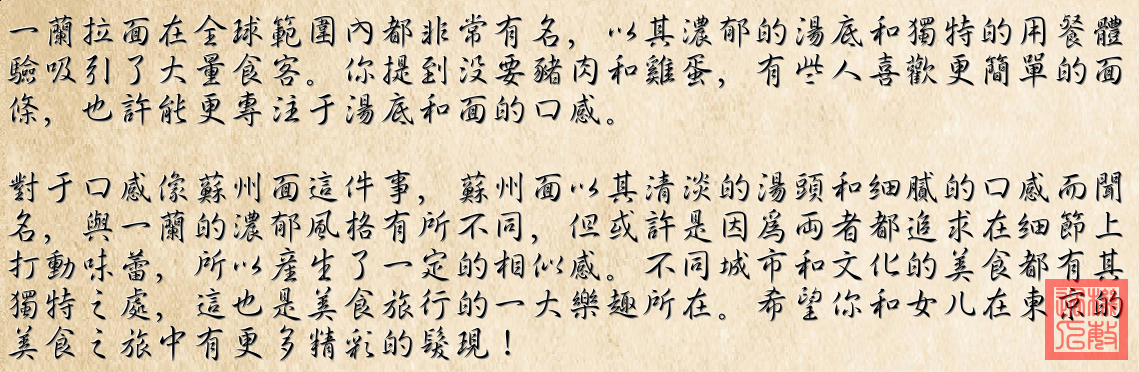 一蘭拉面在全球範圍內都非常有名，以其濃郁的湯底和獨特的用餐體
驗吸引了大量食客。你提到没要豬肉和雞蛋，有些人喜歡更簡單的面
條，也許能更專注于湯底和面的口感。
對于口感像蘇州面這件事，蘇州面以其清淡的湯頭和細膩的口感而聞
名，與一蘭的濃郁風格有所不同，但或許是因爲両者都追求在細節上
打動味蕾，所以産生了一定的相似感。不同城市和文化的美食都有其
獨特之處，這也是美食旅行的一大樂趣所在。希望你和女儿在東京的
美食之旅中有更多精彩的髮現！